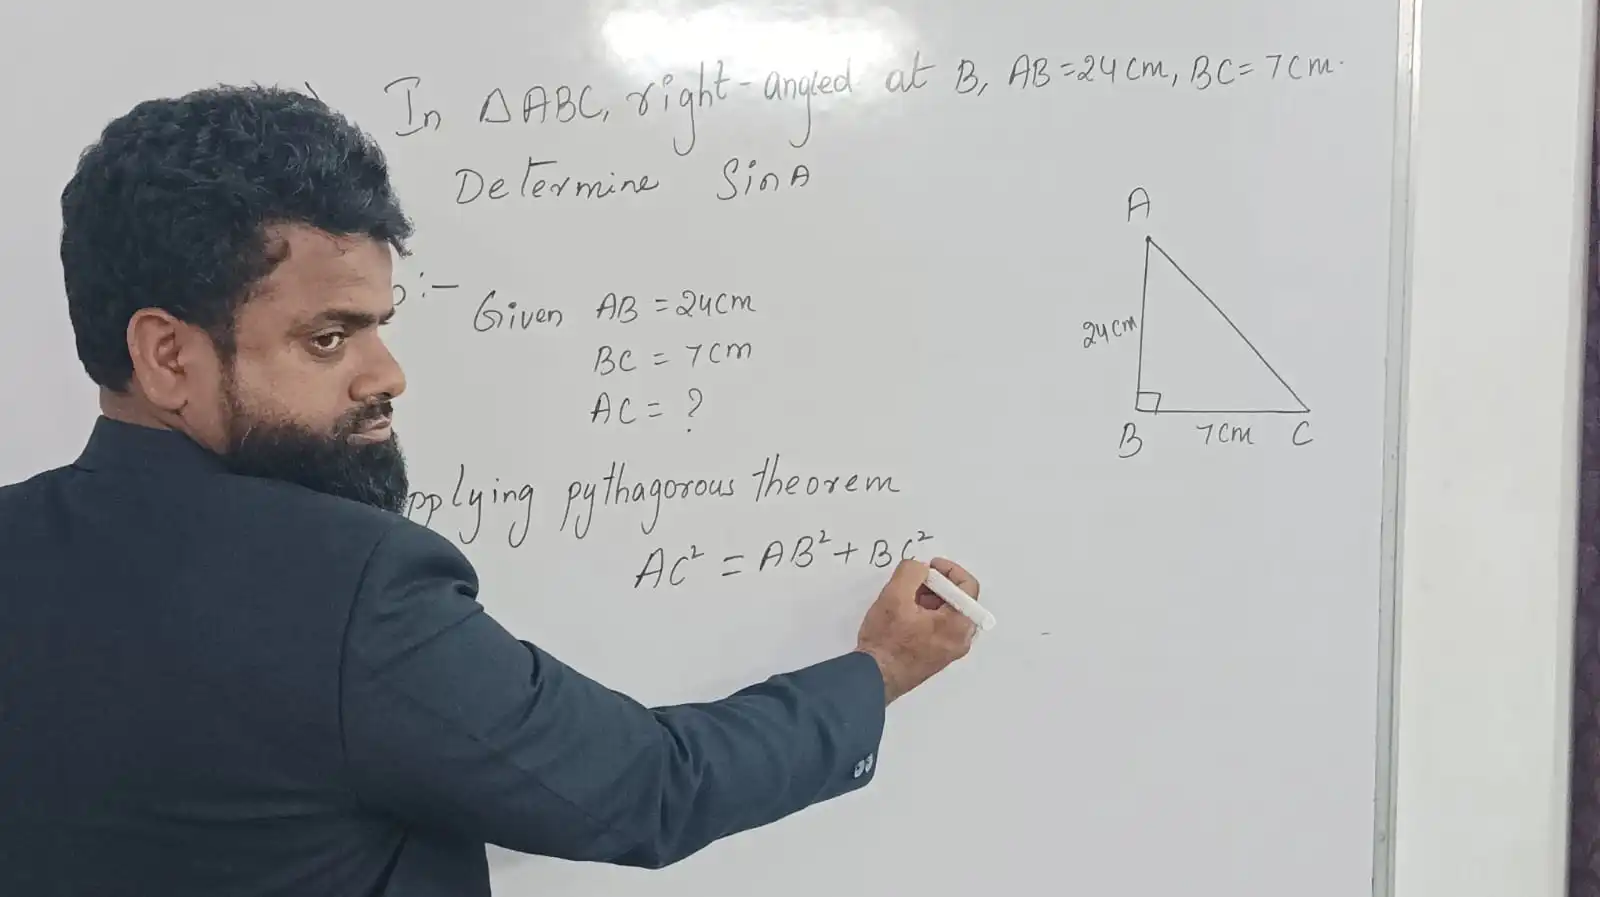 In △ABC, right-angled at B, AB=24cm, BC=7cm.
Determine SinA
:-
Given AB = 24cm
BC = 7cm
AC = ?
pplying pythagorous theorem
AC² = AB² + BC²
A
24cm
B 7cm C